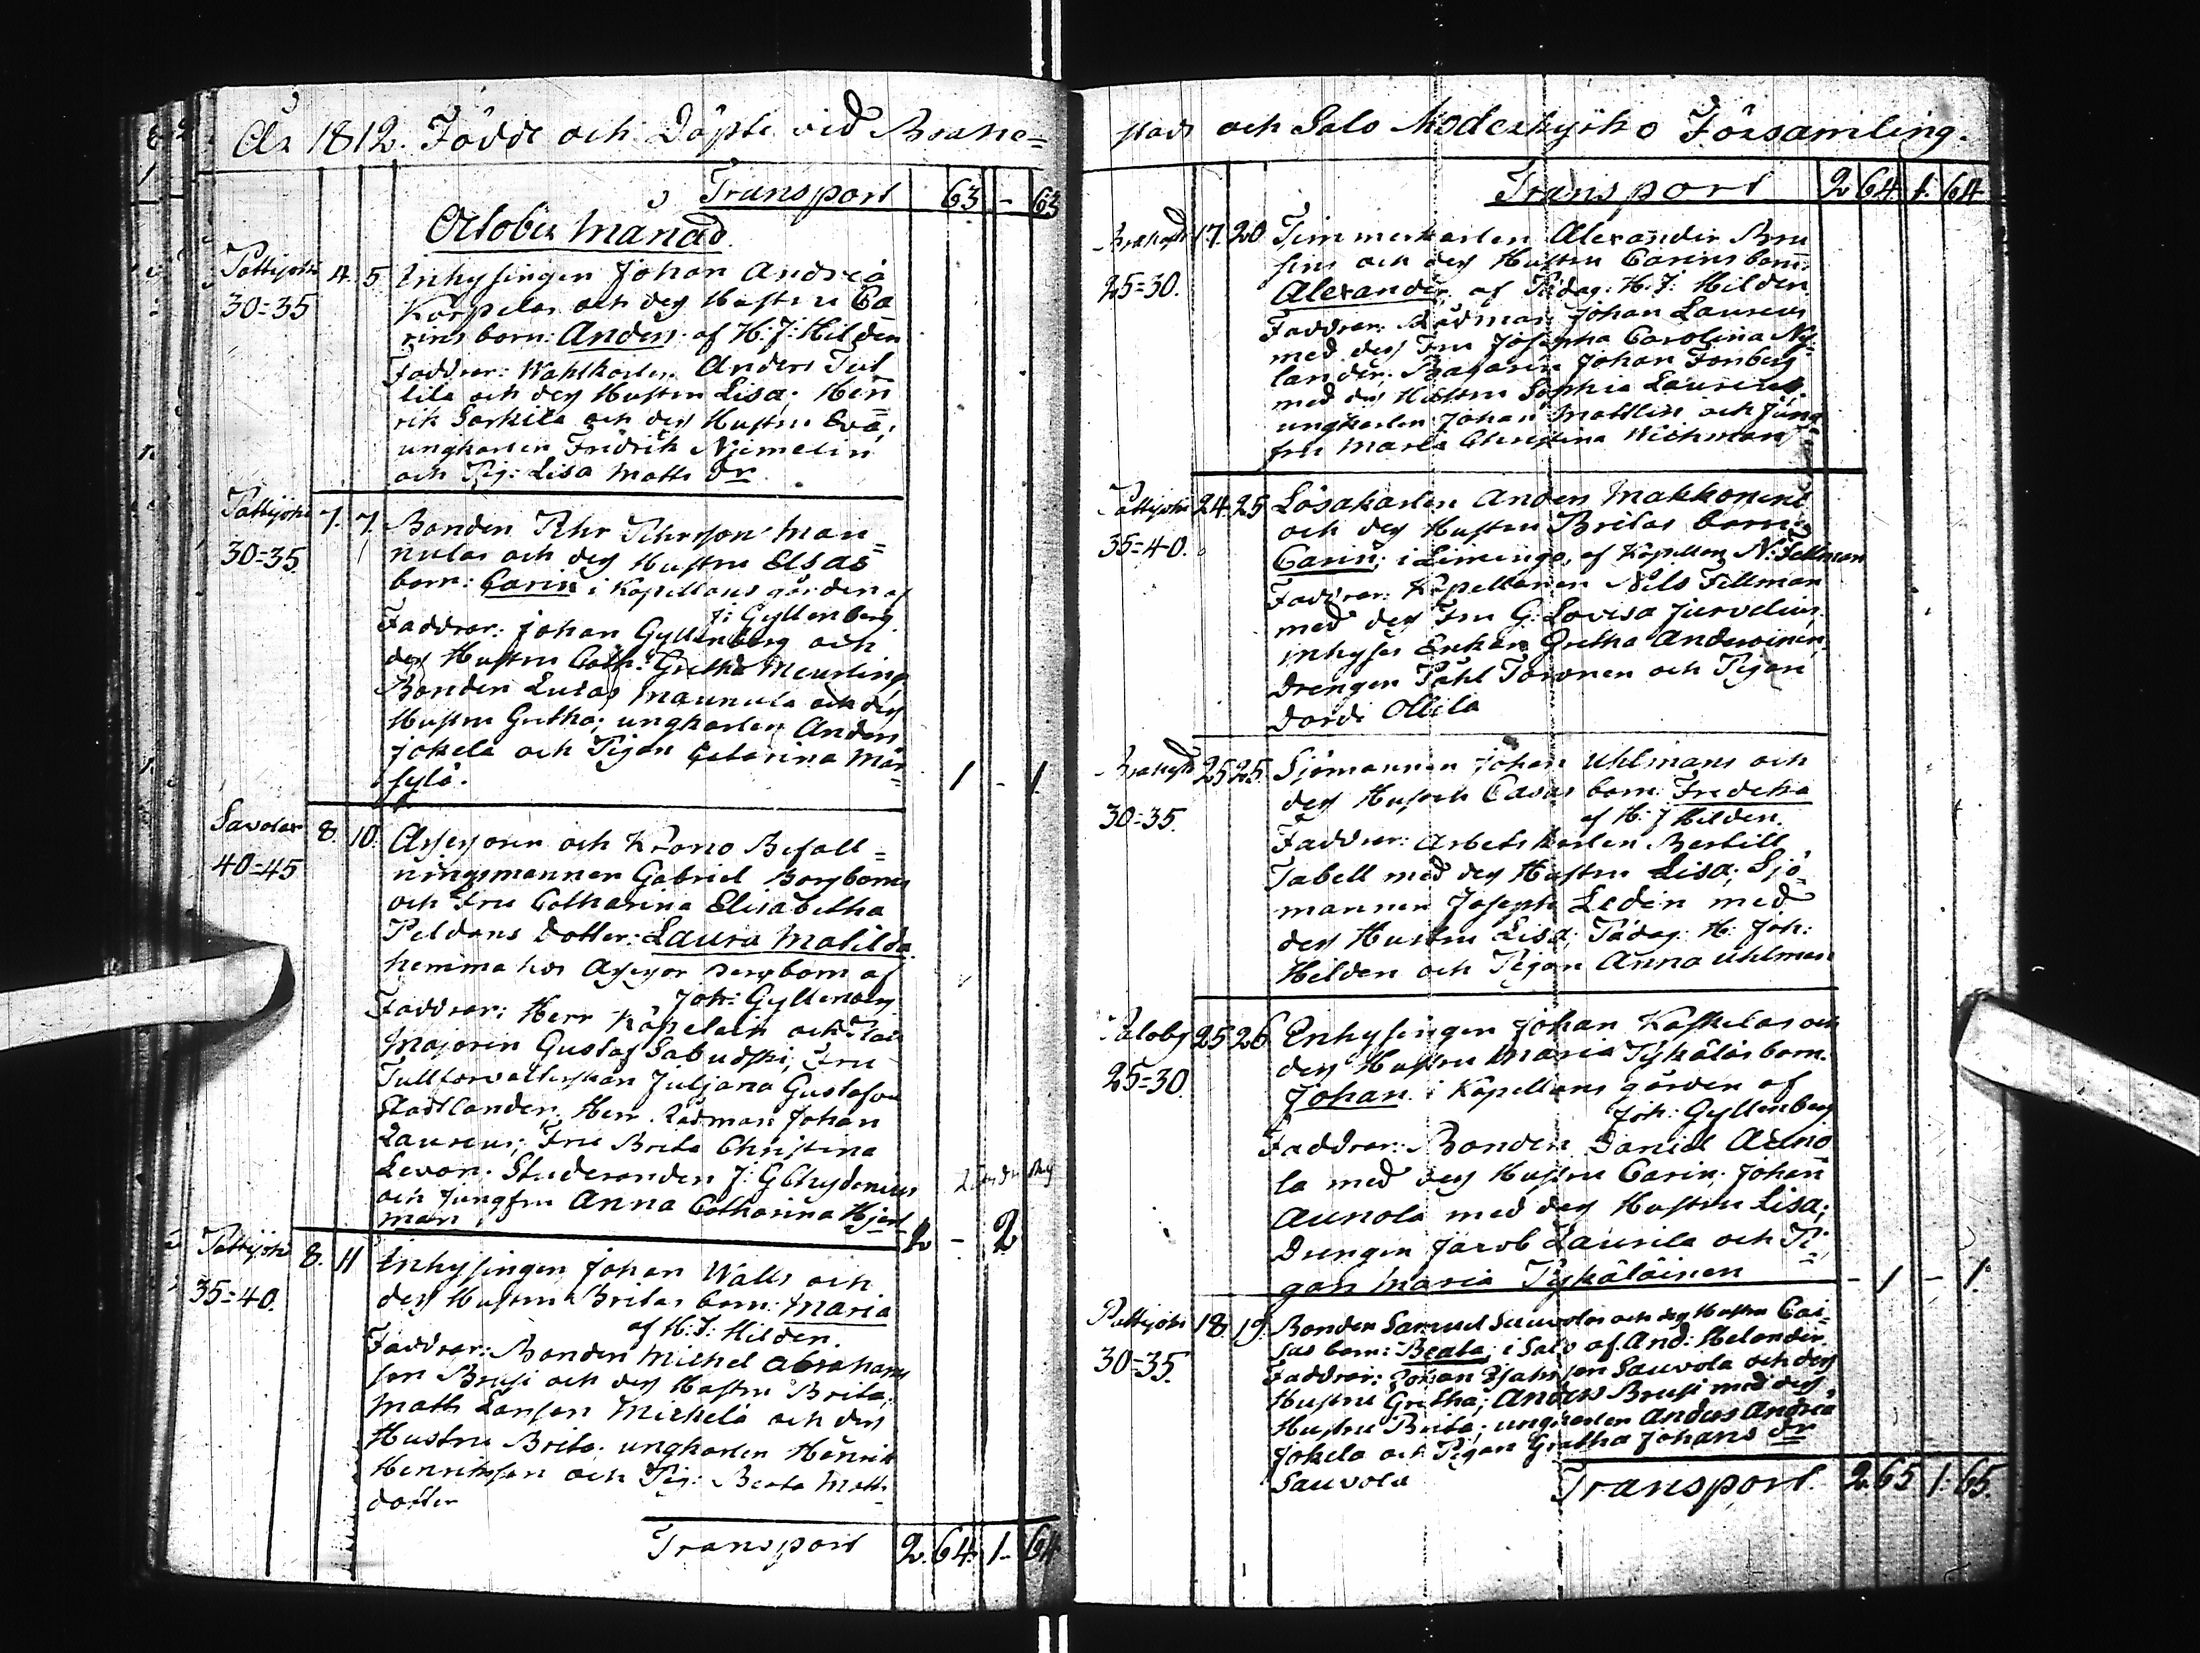 År 1812. Födde och Döpte vid Brahe=
Transport 63 - 63
October Månad.
Pattijoki 4. 5. Inhysingen Johan Andreä
30=35 Korpelas och des Hustru Ca
rins barn: Anders af H: J: Hilden
Faddrar: Wahlkarlen Anders Tut
tila och des Hustru Lisa; Hen
rik Sarkila och des Hustru Eva;
ungkarlen Fredrik Niemelin
och Pig: Lisa Matts dr
Pattijoki 7. 7. Bonden Pehr Pehrsson Man=
30=35. nulas och des Hustru Elsas
barn: Carin i Kapellans gården af
J: Gyllenberg
Faddrar: Johan Gyllenberg och
des Hustru Cath: Gretha Meurling
Bonden Lucas Maunula och des
Hustru Gretha; ungkarlen Anders
Jokela och Pigan Catarina Mär=
sylä.
1 - 1.
Savolax 8. 10. Assessoren och Krono Befall=
40=45 ningsmannen Gabriel Borgboms
och Fru Catharina Elisabetha
Peldans Dotter: Laura Matilda
hemma hos Assessor Borgbom af
Joh: Gyllenberg
Faddrar: Herr Kapelain och
Majoren Gustaf Fru
Tullförvalterskan Juljana Gustafva
Stadtlander. Herr Rådman Johan
Laureus; Fru Brita Christina
Levon. Studeranden J: G Chydenius
och Jungfru Anna Catharina Hjert
man
2 - 2
Pattijoki 8. 11 Inhysingen Johan Walls och
35=40. des Hustru Britas barn: Maria
af H: J: Hilden.
Faddrar: Bonden Michel Abrahams
son Brusi och des Hustru Brita,
Matts Larsson Mickelä och des
Hustru Brita. ungkarlen Henrik
Henriksson och Pig: Beata Matts
dotter
Transport 2. 64. 1- 64
stads och Salo Moderkyrko Församling.
Transport 2 64. 1. 64
17. 20 Timmerkarlen Alexander Bru
25=30. sins och des Hustru Carins barn:
Alexander af Pädag: H: J: Hilden
Faddrar: Rådman Johan Laureus
med des Fru Josepha Carolina Ny=
lander; Bagaren Johan Forsberg
med des Hustru Sophia Laureus;
ungkarlen Johan Mattlin och Jung=
fru Maria Christina Wichman
Pattijoki 24. 25 Lösakarlen Anders Makkonens
35=40. och des Hustru Britas barn:
Carin; i Limingo, af Kapellan N: Fellman
Faddrar: Kapellanen Nils Fellman
med des Fru G: Lovisa Jurvelius.
inhyses Enkan Gretha Andersinen,
Drengen Påhl Toronen och Pigan
Dordi Ollila
25 25. Sjömannen Johan Uhlmans och
30=35. des Hustru Cajsas barn: Fredrika
af H: J Hilden.
Faddrar: Arbetskarlen Bertill
Tabell med des Hustru Lisa; Sjö
mannen Joseph Ledin med
des Hustru Lisa; Pädag: H: Joh:
Hilden och Pigan Anna Uhlman
Paloby 25 26 Inhysingen Johan Koskelas och
25=30. des Hustru Maria Tykäläs barn.
Johan. i Kapellans gården af
Joh: Gyllenberg
Faddrar: Bonden Daniel Auno
la med des Hustru Carin; Johan
Aunola med des Hustru Lisa;
Drengen Jacob Laurila och Pi=
gan Maria Tykäläinen
- 1 - 1.
Pattijoki 18. 19. Bonden Samuel Sauvolas och des Hustru Cai=
30=35. sas barn: Beata; i Salo af And: Helander.
Faddrar: Johan Isaksson Sauvola och des
Hustru Gretha; Anders Brusi med des
Hustru Brita; ungkarlen Anders Andreä
Jokela och Pigan Gretha Johans dr
Sauvola
Transport. 2. 65 1. 65.